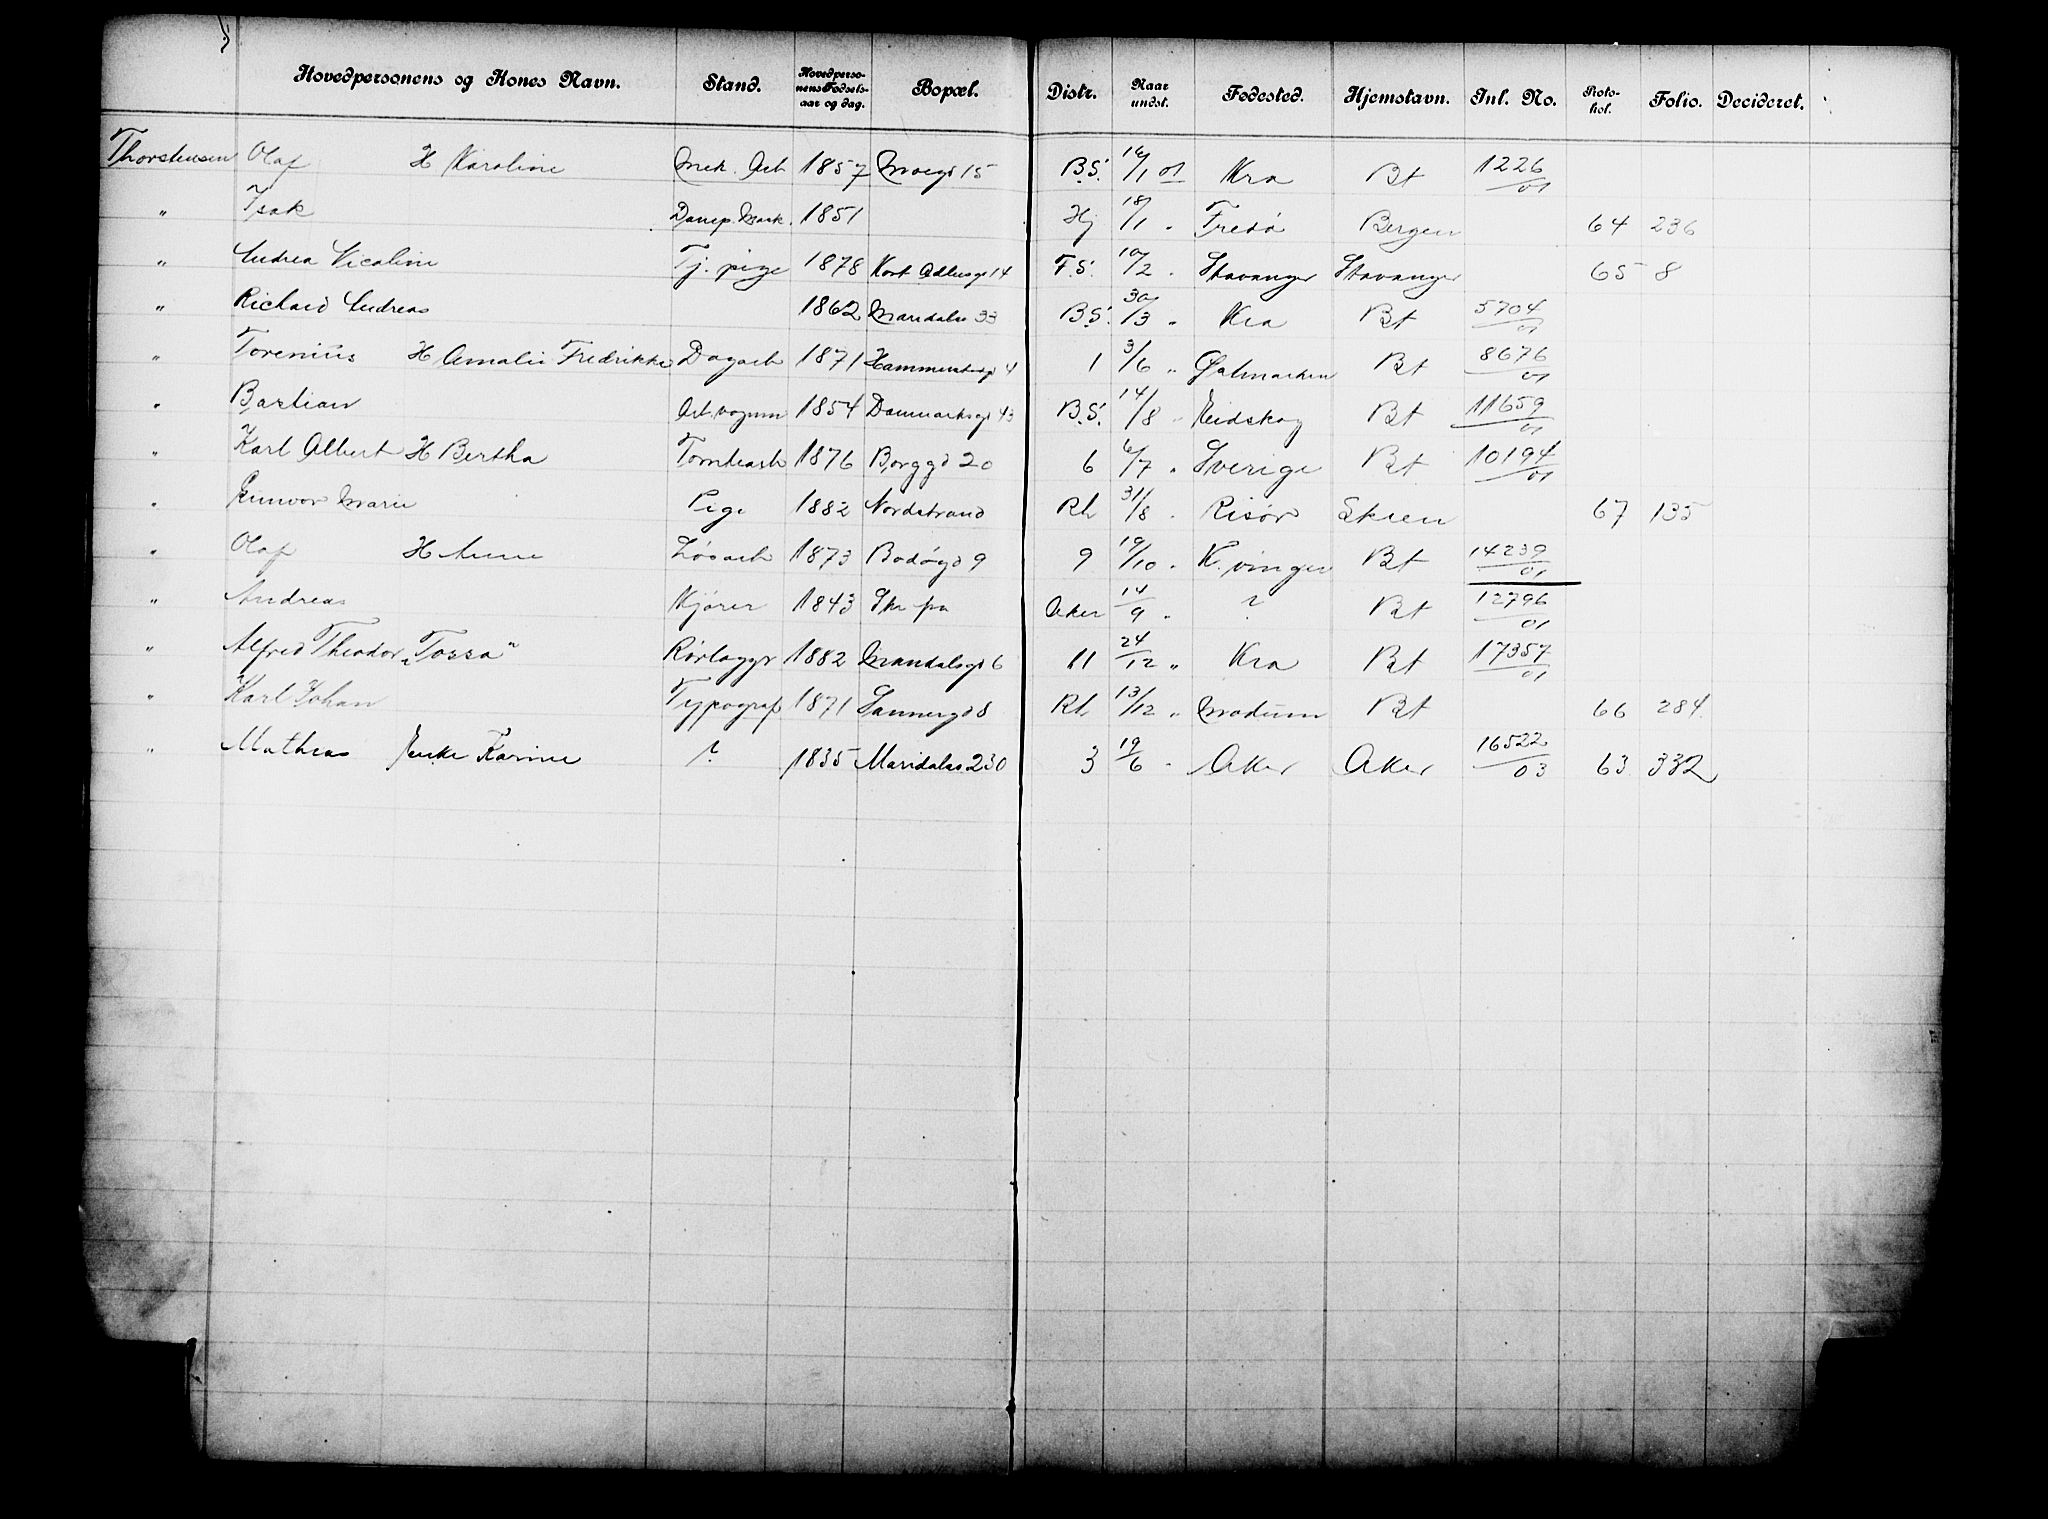 Hovedpersonens og Kones Navn. Stand. Hovedpersonens Fødselsaar og dag. Bopæl. Distr. Naar undst. Fødested. Hjemstavn. Inl. No. Protokol. Folio. Decideret.
Thorstensen Olaf H Karoline Mek. Arb 1857 15 B.S. 16/1 01 Kra Bt 1226/01
" Isak 1851 Hj 18/1 " Fredø Bergen 64 236
" Andrea Nicoline Tj. pige 1878 Kort Adlersgd 14 F.S. 10/2 " Stavanger Stavanger 65 8
" Richard Andreas 1862 Maridalsv 33 B.S. 30/3 " Kra Bt 5704/01
" Torenius H Amalie Fredrikke Dagarb 1871 Hammersbgd 4 1 3/6 " Bt 8676/01
" Bastian Arb. vogum 1854 Danmarksgd 43 B.S. 14/8 " Eidskog Bt 11659/01
" Karl Albert H Bertha Tomtearb 1876 Borggd 20 6 6/7 " Sverige Bt 10194/01
" Gunvor Marie Pige 1882 Nordstrand Rh 31/8 " Risør Skien 67 135
" Olaf H Anne Løsarb 1873 Bodøgd 9 9 19/10 " K.vinger Bt 14239/01
" Andreas Kjører 1843 Aker 14/9 " ? Bt 12796/01
" Alfred Theodor „Tossa" Rørlæggr 1882 Mandalsgd 6 11 24/12 " Kra Bt 17357/01
" Karl Johan Typograf 1871 Sannergd 8 Rh 13/12 " Modum Bt 66 284
" Mathias Enke Karine ? 1835 Maridalsv 230 3 19/6 " Aker Aker 16522/03 63 332